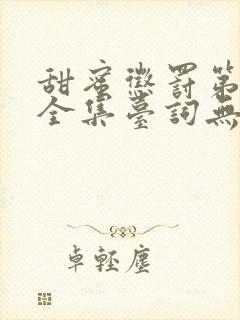 甜蜜懲罰第
全集臺詞無
卓輕塵